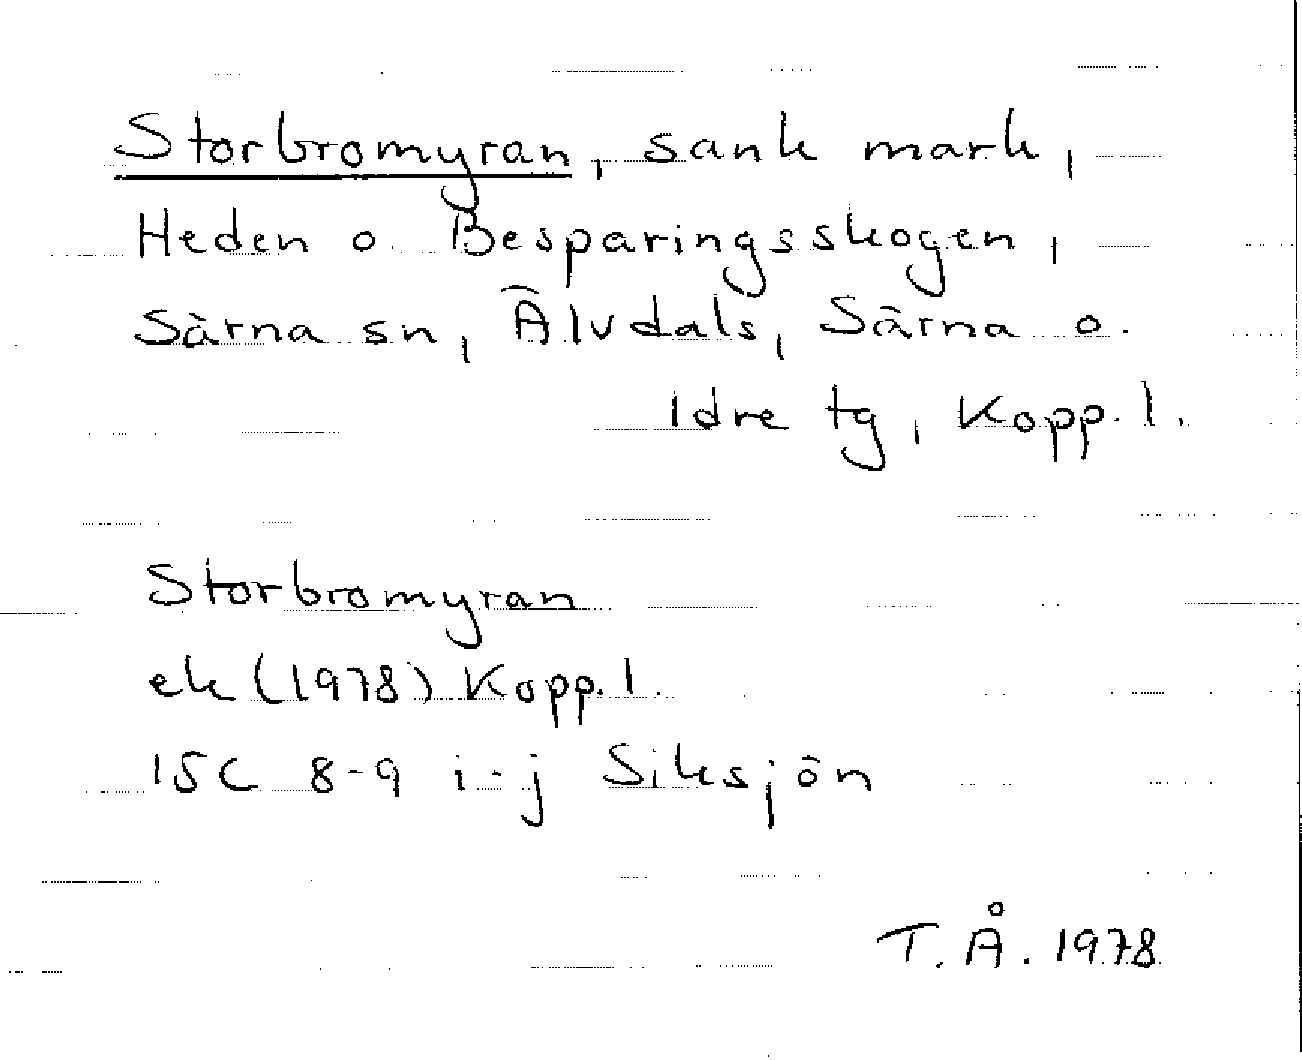 Storbromyran, sank mark,
Heden o. Besparingsskogen,
Särna sn, Älvdals, Särna o.
Idre tg, Kopp. l.
Storbromyran
ek (1978) Kopp. l.
15C 8-9 i-j Siksjön
T. Å. 1978